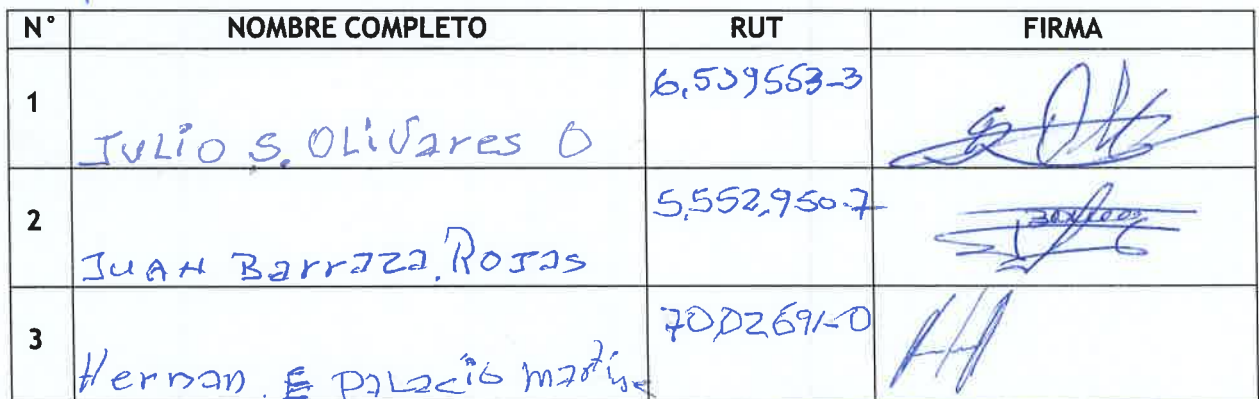 N° NOMBRE COMPLETO RUT FIRMA
1 JULIO S. OLIVares O 6,539553-3
2 JUAN Barraza. Rojas 5,552,950-7
3 Hernan. E PaLacio 70,02691-0